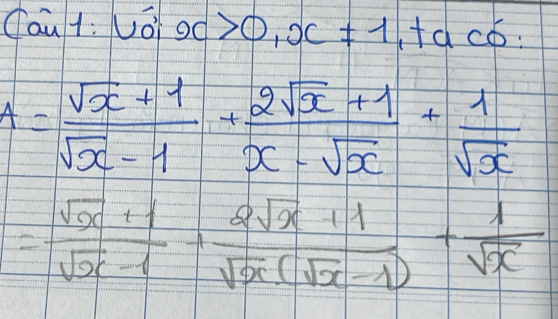 Câu 1: Với x > 0, x ≠ 1, ta có:
A = \frac{\sqrt{x} + 1}{\sqrt{x} - 1} + \frac{2\sqrt{x} + 1}{x - \sqrt{x}} + \frac{1}{\sqrt{x}}
= \frac{\sqrt{x} + 1}{\sqrt{x} - 1} + \frac{2\sqrt{x} + 1}{\sqrt{x}(\sqrt{x} - 1)} + \frac{1}{\sqrt{x}}